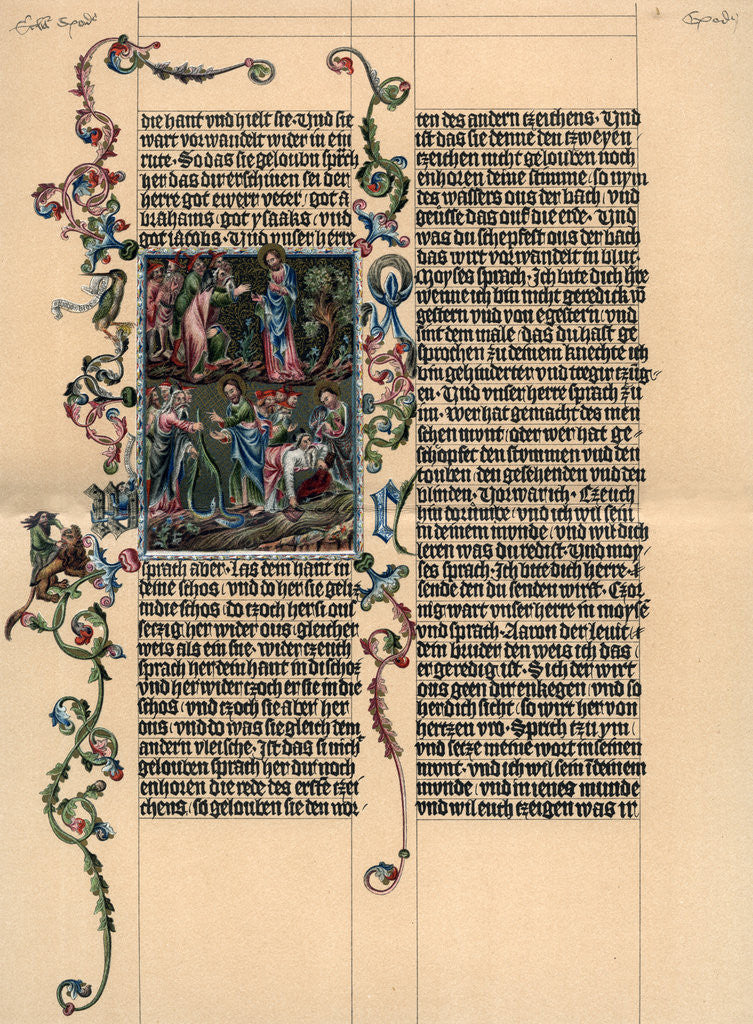 die hant vnd hielt sie · Und sie
wart vorwandelt wider in ein
rute · So das sie gelouben sprch
her das dir erschinen sei der
herre got ewerr veter / got a
brahams / got ysaaks / vnd
got iacobs · Und vnser herre
sprach aber · las dein hant in
deine schos / vnd do her sie geliz
in die schos / do czoch her si ous
seczig her wider ous / gleicher
weis als ein sne · wider czeuch
sprach her dein hant in di schoz
vnd her wider czoch er sie in die
schos / vnd czoch sie aber her
ous / vnd do was sie gleich dem
andern vleische · Ist das si nich
gelouben sprach her dir noch
enhoren die rede des erste czei
chens / so gelouben sie den wor
ten des andern czeichens · Und
ist das sie denne den czweyen
czeichen nicht gelouben noch
enhoren deine stimme / so nym
des wassers ous der bach / vnd
geusse das ouf die erde · Und
was du schepfest ous der bach
das wirt vorwandelt in blut ·
Moyses sprach · Ich bite dich hre
wenne ich bin nicht geredick vo
gestern vnd von egestern / vnd
sint dem male / das du hast ge
sprochen zu deinem knechte ich
bin gehinderter vnd tregir czüg
en · Und vnser herre sprach zu
im · Wer hat gemacht des men
schen mvnt / oder wer hat ge
schopfet den stvmmen vnd den
touben / den gesehenden vnd den
blinden · Vorwar ich · Czeuch
hin dorümbe / vnd ich wil sein
in deinem mvnde / vnd wil dich
leren was du redist · Und moy
ses sprach · Ich bite dich herre ·
sende den du senden wirst · Czor
nig wart vnser herre in moyse
vnd sprach · Aaron der leuit
dein bruder den weis ich das
er geredig ist · Sich der wirt
ous geen dir enkegen / vnd so
her dich sicht / so wirt her von
hertzen vro · Sprich tzu ym /
vnd setze meine wort in seinen
mvnt · vnd ich wil sein i deinem
mvnde / vnd in ienes munde
vnd wil euch tzeigen was ir